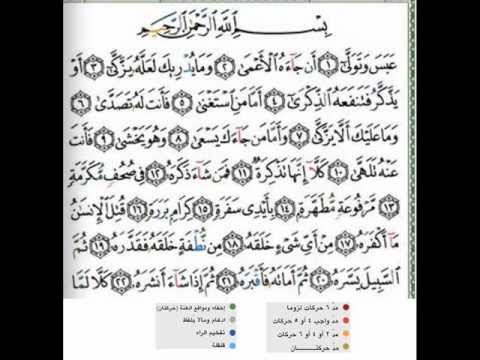 بِسْمِ اللَّهِ الرَّحْمَٰنِ الرَّحِيمِ
عَبَسَ وَتَوَلَّىٰٓ ١ أَن جَآءَهُ ٱلْأَعْمَىٰ ٢ وَمَا يُدْرِيكَ لَعَلَّهُۥ يَزَّكَّىٰٓ ٣ أَوْ
يَذَّكَّرُ فَتَنفَعَهُ ٱلذِّكْرَىٰٓ ٤ أَمَّا مَنِ ٱسْتَغْنَىٰ ٥ فَأَنتَ لَهُۥ تَصَدَّىٰ ٦
وَمَا عَلَيْكَ أَلَّا يَزَّكَّىٰ ٧ وَأَمَّا مَن جَآءَكَ يَسْعَىٰ ٨ وَهُوَ يَخْشَىٰ ٩ فَأَنتَ
عَنْهُ تَلَهَّىٰ ١٠ كَلَّآ إِنَّهَا تَذْكِرَةٌ ١١ فَمَن شَآءَ ذَكَرَهُۥ ١٢ فِى صُحُفٍ مُّكَرَّمَةٍ
١٣ مَّرْفُوعَةٍ مُّطَهَّرَةٍۭ ١٤ بِأَيْدِى سَفَرَةٍ ١٥ كِرَامٍۭ بَرَرَةٍ ١٦ قُتِلَ ٱلْإِنسَٰنُ
مَآ أَكْفَرَهُۥ ١٧ مِنْ أَىِّ شَىْءٍ خَلَقَهُۥ ١٨ مِن نُّطْفَةٍ خَلَقَهُۥ فَقَدَّرَهُۥ ١٩ ثُمَّ
ٱلسَّبِيلَ يَسَّرَهُۥ ٢٠ ثُمَّ أَمَاتَهُۥ فَأَقْبَرَهُۥ ٢١ ثُمَّ إِذَا شَآءَ أَنشَرَهُۥ ٢٢ كَلَّا لَمَّا
مدّ ٦ حركات لزوما
مدّ واجب ٤ أو ٥ حركات
مدّ ٢ أو ٤ أو ٦ حركات
مدّ حركتـــــان
إخفاء ومواقع الغنة (حركتان)
ادغام ومالا يلفظ
تفخيم الراء
قلقلة